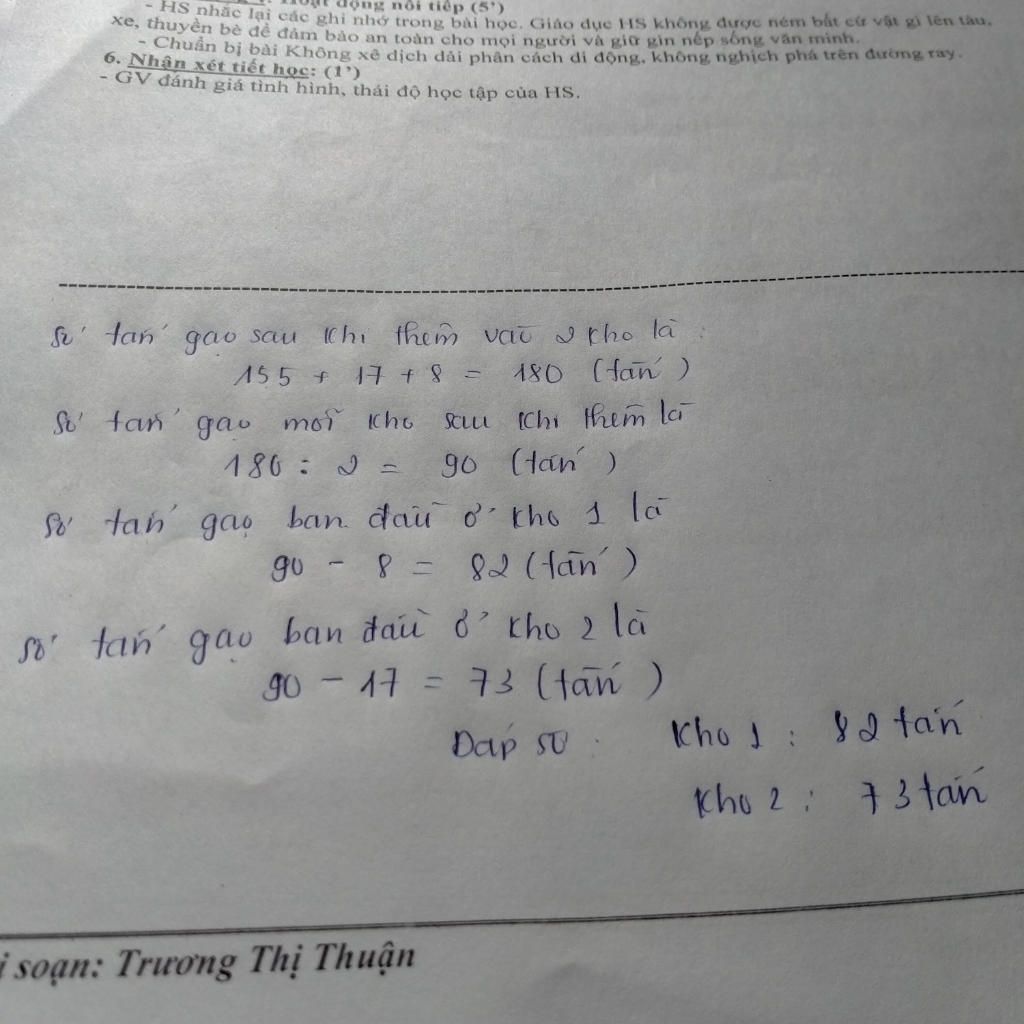 Hoạt động nối tiếp (5')
- HS nhắc lại các ghi nhớ trong bài học. Giáo dục HS không được ném bất cứ vật gì lên tàu,
xe, thuyền bè để đảm bảo an toàn cho mọi người và giữ gìn nếp sống văn minh.
- Chuẩn bị bài Không xê dịch dải phân cách di động, không nghịch phá trên đường ray.
6. Nhận xét tiết học: (1')
- GV đánh giá tình hình, thái độ học tập của HS.
Số tấn gạo sau khi thêm vào 2 kho là :
155 + 17 + 8 = 180 (tấn)
Số tấn gạo mỗi kho sau khi thêm là
180 : 2 = 90 (tấn)
Số tấn gạo ban đầu ở kho 1 là
90 - 8 = 82 (tấn)
Số tấn gạo ban đầu ở kho 2 là
90 - 17 = 73 (tấn)
Đáp số : Kho 1 : 82 tấn
Kho 2 : 73 tấn
i soạn: Trương Thị Thuận